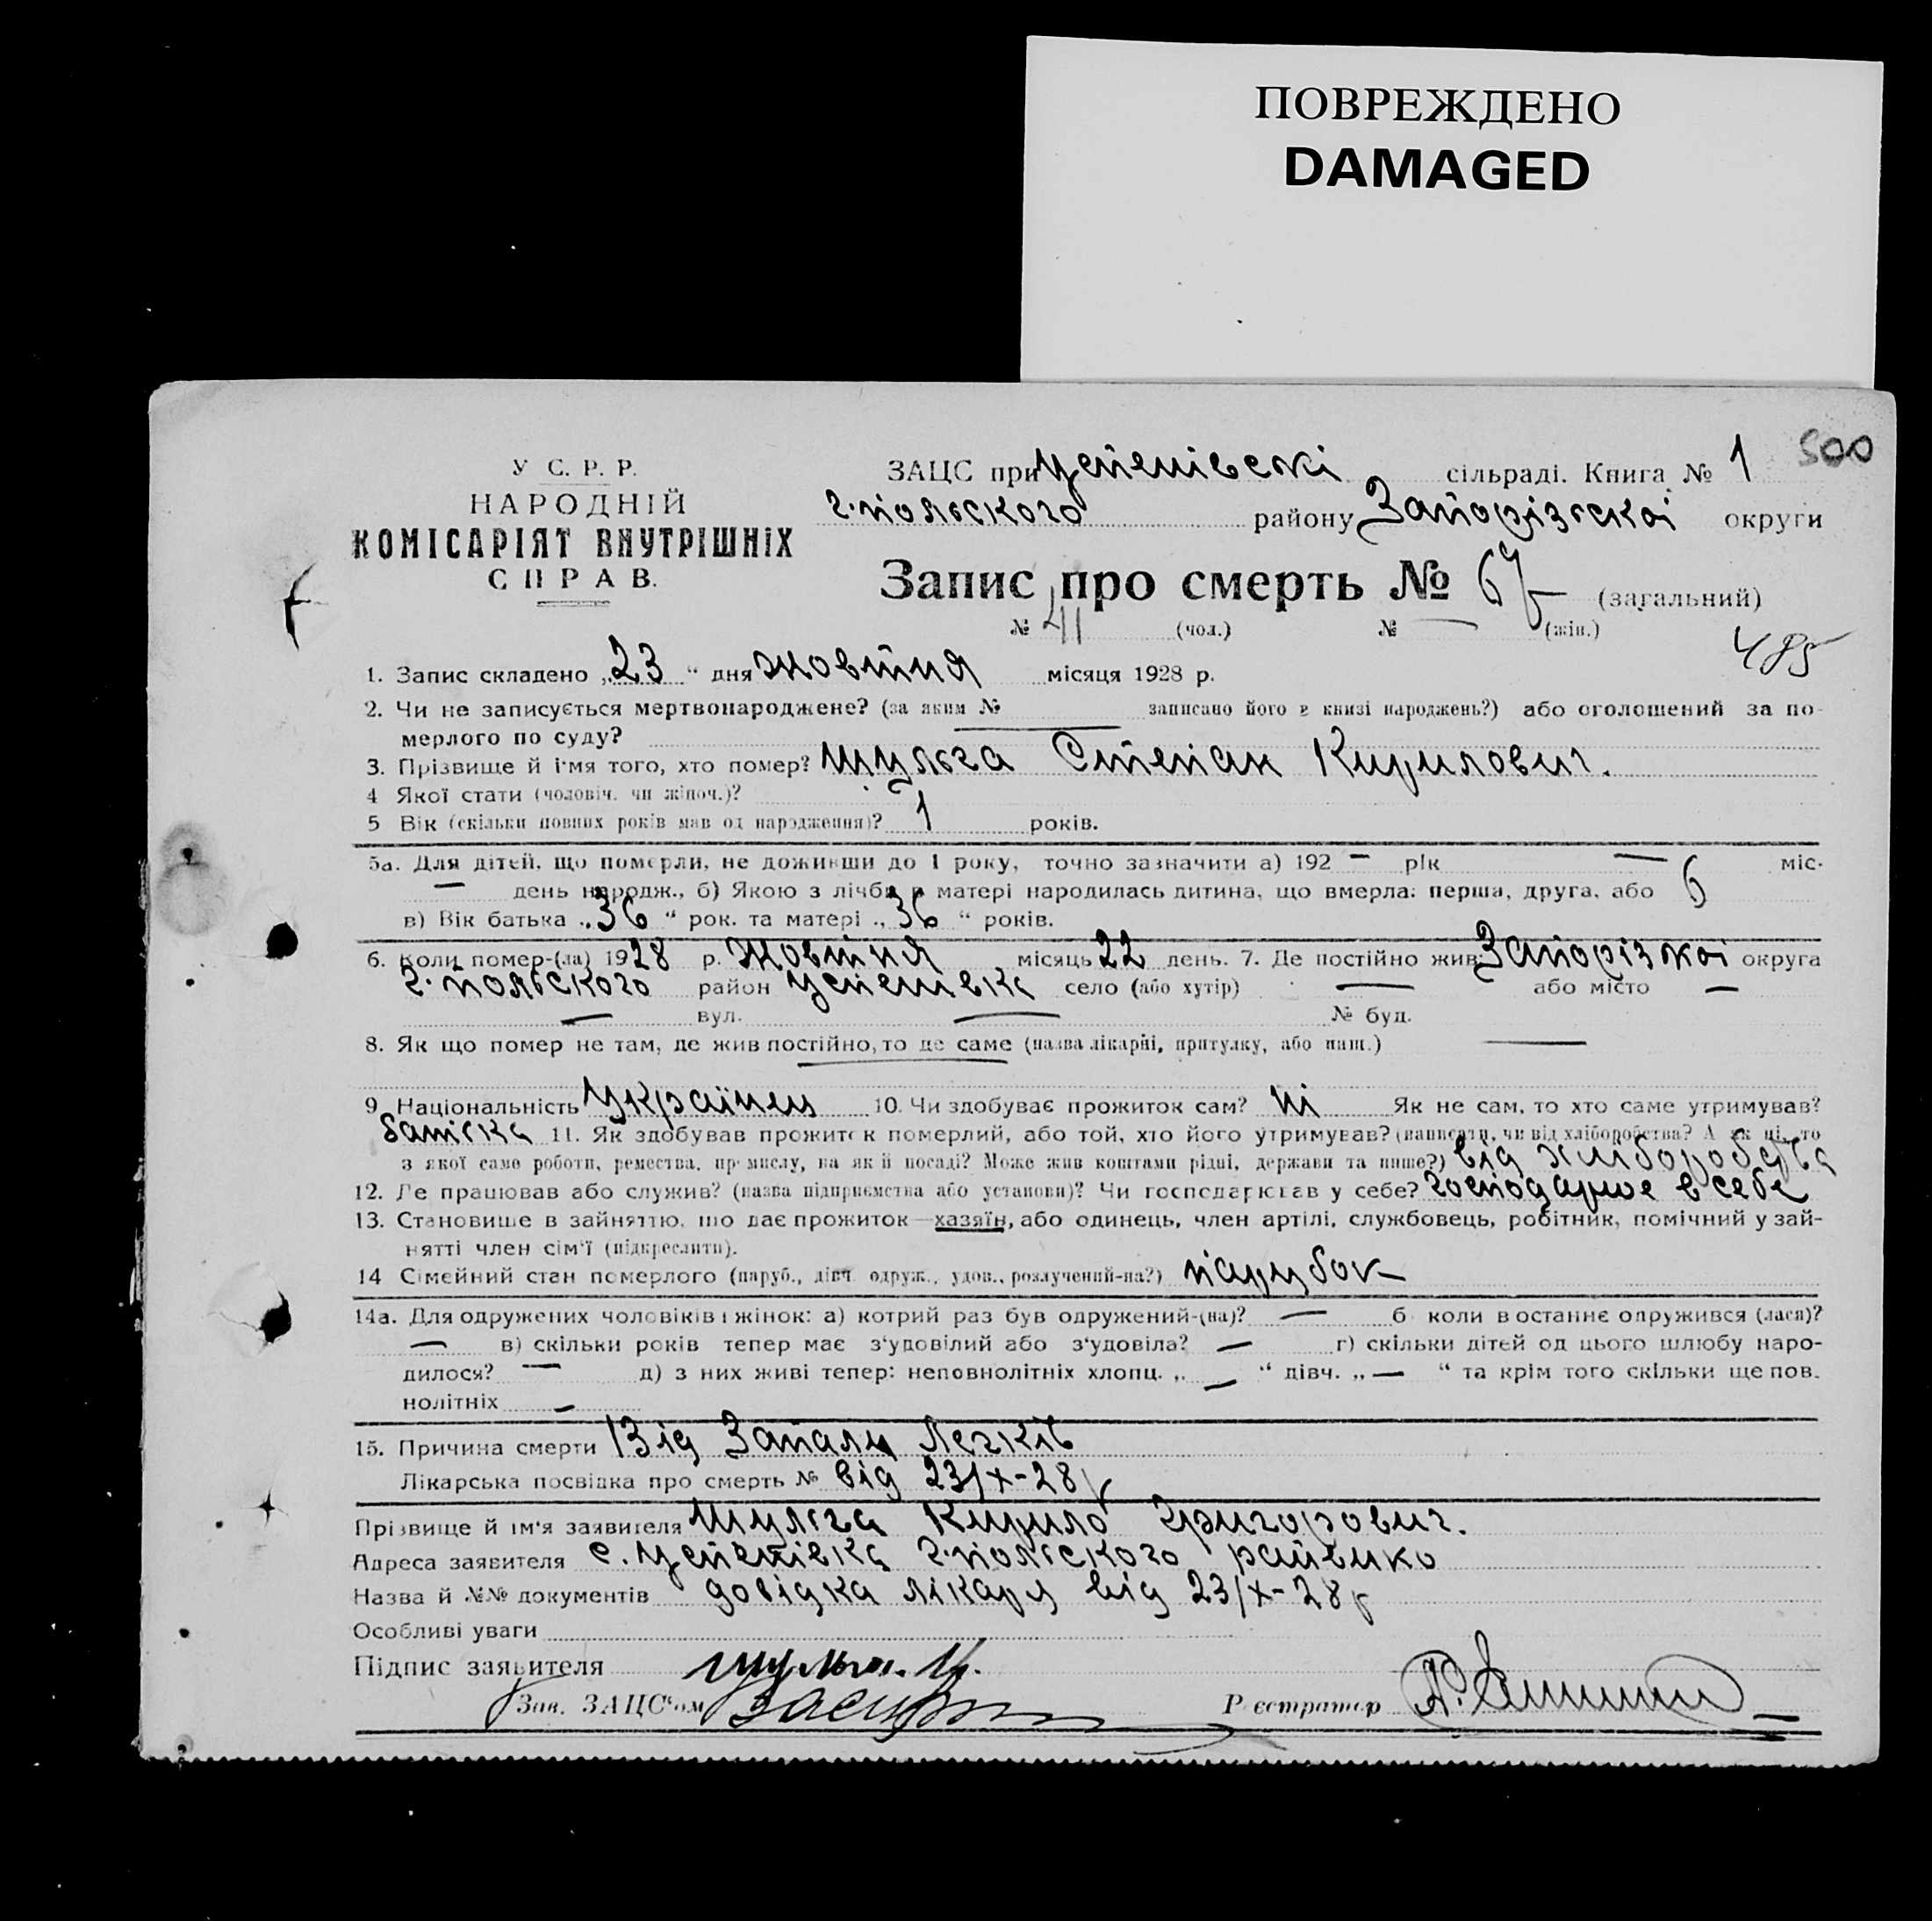 ПОВРЕЖДЕНО
DAMAGED
500
У С. Р. Р.
НАРОДНІЙ
КОМІСАРІЯТ ВНУТРІШНІХ
СПРАВ.
ЗАЦС при Успенівскі сільраді. Книга № 1
г.польського району Запорізької округи
Запис про смерть № 67 (загальний)
№ 41 (чол.) № — (жін.)
485
1. Запис складено „23“ дня жовтня місяця 1928 р.
2. Чи не записується мертвонароджене? (за яким № записано його в книзі народжень?) або оголошений за по-
мерлого по суду? —
3. Прізвище й ім'я того, хто помер? Шульга Степан Кирилович.
4 Якої стати (чоловіч. чи жіноч.)?
5 Вік (скільки повних років мав од народження)? 1 років.
5а. Для дітей, що померли, не доживши до 1 року, точно зазначити а) 192 — рік — міс.
— день народж., б) Якою з лічби в матері народилась дитина, що вмерла: перша, друга, або 6
в) Вік батька „36“ рок. та матері „36“ років.
6. Коли помер-(ла) 1928 р. жовтня місяць 22 день. 7. Де постійно жив: Запорізкої округа
г.польського район Успенівка село (або хутір) — або місто —
— вул. — № буд.
8. Як що помер не там, де жив постійно, то де саме (назва лікарні, притулку, або инш.) —
9. Національність Українец 10. Чи здобуває прожиток сам? ні Як не сам, то хто саме утримував?
батько 11. Як здобував прожиток померлий, або той, хто його утримував? (написати, чи від хліборобства? А як ні, то
з якої саме роботи, ремества, промислу, на якій посаді? Може жив коштами рідні, держави та инше?) від хліборобства
12. Де працював або служив? (назва підприємства або установи)? Чи господарював у себе? господарює в себе
13. Становище в зайняттю, що дає прожиток—хазяїн, або одинець, член артілі, службовець, робітник, помічний у зай-
нятті член сім'ї (підкреслити).
14 Сімейний стан померлого (паруб., дівч. одруж., удов., розлучений-на?) парубок
14а. Для одружених чоловіків і жінок: а) котрий раз був одружений-(на)? — б) коли востаннє одружився (лася)?
— в) скільки років тепер має з'удовілий або з'удовіла? — г) скільки дітей од цього шлюбу наро-
дилося? — д) з них живі тепер: неповнолітніх хлопц. „—“ дівч. „—“ та крім того скільки ще пов.
нолітніх —
15. Причина смерти Від Запалу Легків
Лікарська посвідка про смерть № від 23/х-28 р
Прізвище й ім'я заявителя Шульга Кирило Григорович.
Адреса заявителя с. Успенівка г.польського району
Назва й №№ документів довідка лікаря від 23/х-28 р
Особливі уваги
Підпис заявителя Шульга.
Зав. ЗАЦС'ом
Реєстратор